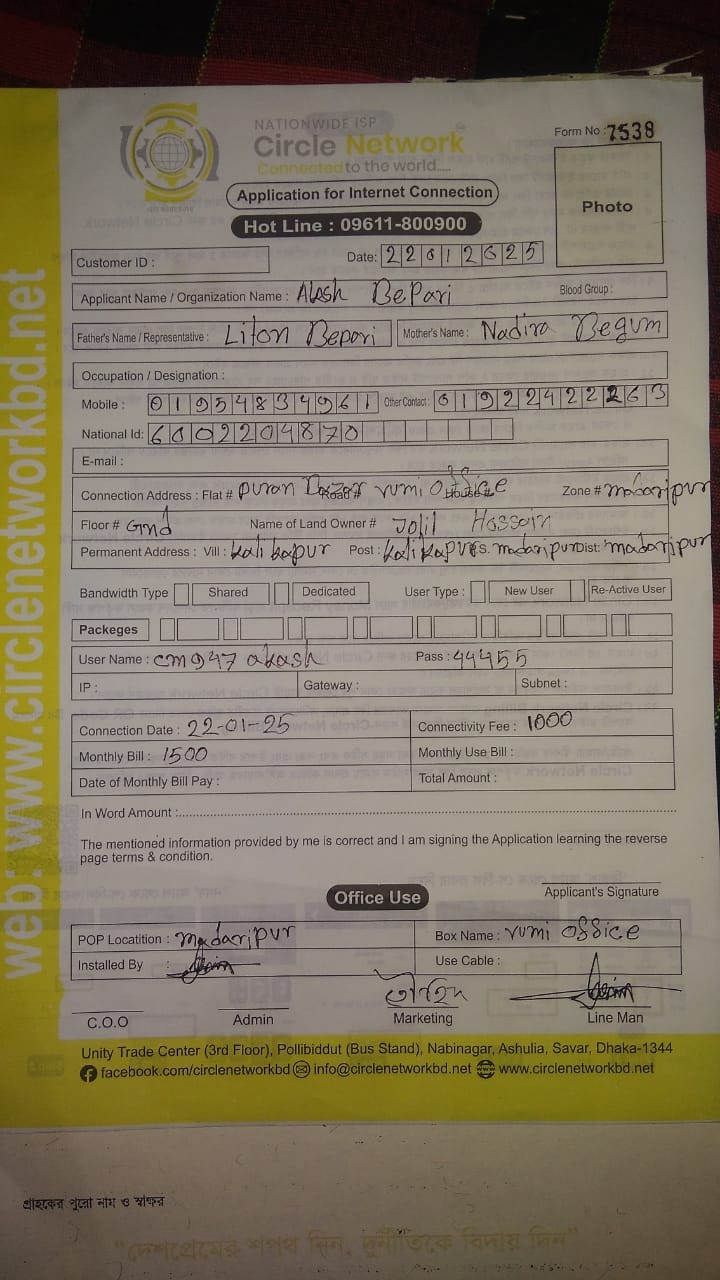 NATIONWIDE ISP
Circle Network
Connected to the world.....
Form No : 7538
Application for Internet Connection
Photo
Hot Line : 09611-800900
Customer ID :
Date: 22012025
Applicant Name / Organization Name : Akash BePari
Blood Group :
Father's Name / Representative : Liton Bepari
Mother's Name : Nadira Begum
Occupation / Designation :
Mobile : 01954834961
Other Contact : 01922422263
National Id: 6002204870
E-mail :
Connection Address : Flat # Puran Bazar Road # rumi Office House # Zone # madaripur
Floor # Gnd Name of Land Owner # Jolil Hossain
Permanent Address : Vill : kali kapur Post : kalikapur P.S. madaripur Dist: madaripur
Bandwidth Type Shared Dedicated User Type : New User Re-Active User
Packeges
User Name : cm947 akash Pass : 44455
IP : Gateway : Subnet :
Connection Date : 22-01-25 Connectivity Fee : 1000
Monthly Bill : 1500 Monthly Use Bill :
Date of Monthly Bill Pay : Total Amount :
In Word Amount :
The mentioned information provided by me is correct and I am signing the Application learning the reverse
page terms & condition.
Office Use
Applicant's Signature
POP Locatition : madaripur Box Name : rumi office
Installed By : Use Cable :
C.O.O Admin Marketing Line Man
Unity Trade Center (3rd Floor), Pollibiddut (Bus Stand), Nabinagar, Ashulia, Savar, Dhaka-1344
facebook.com/circlenetworkbd info@circlenetworkbd.net www.circlenetworkbd.net
web: www.circlenetworkbd.net
গ্রাহকের পুরো নাম ও স্বাক্ষর
"দেশপ্রেমের শপথ নিন, দুর্নীতিকে বিদায় দিন"